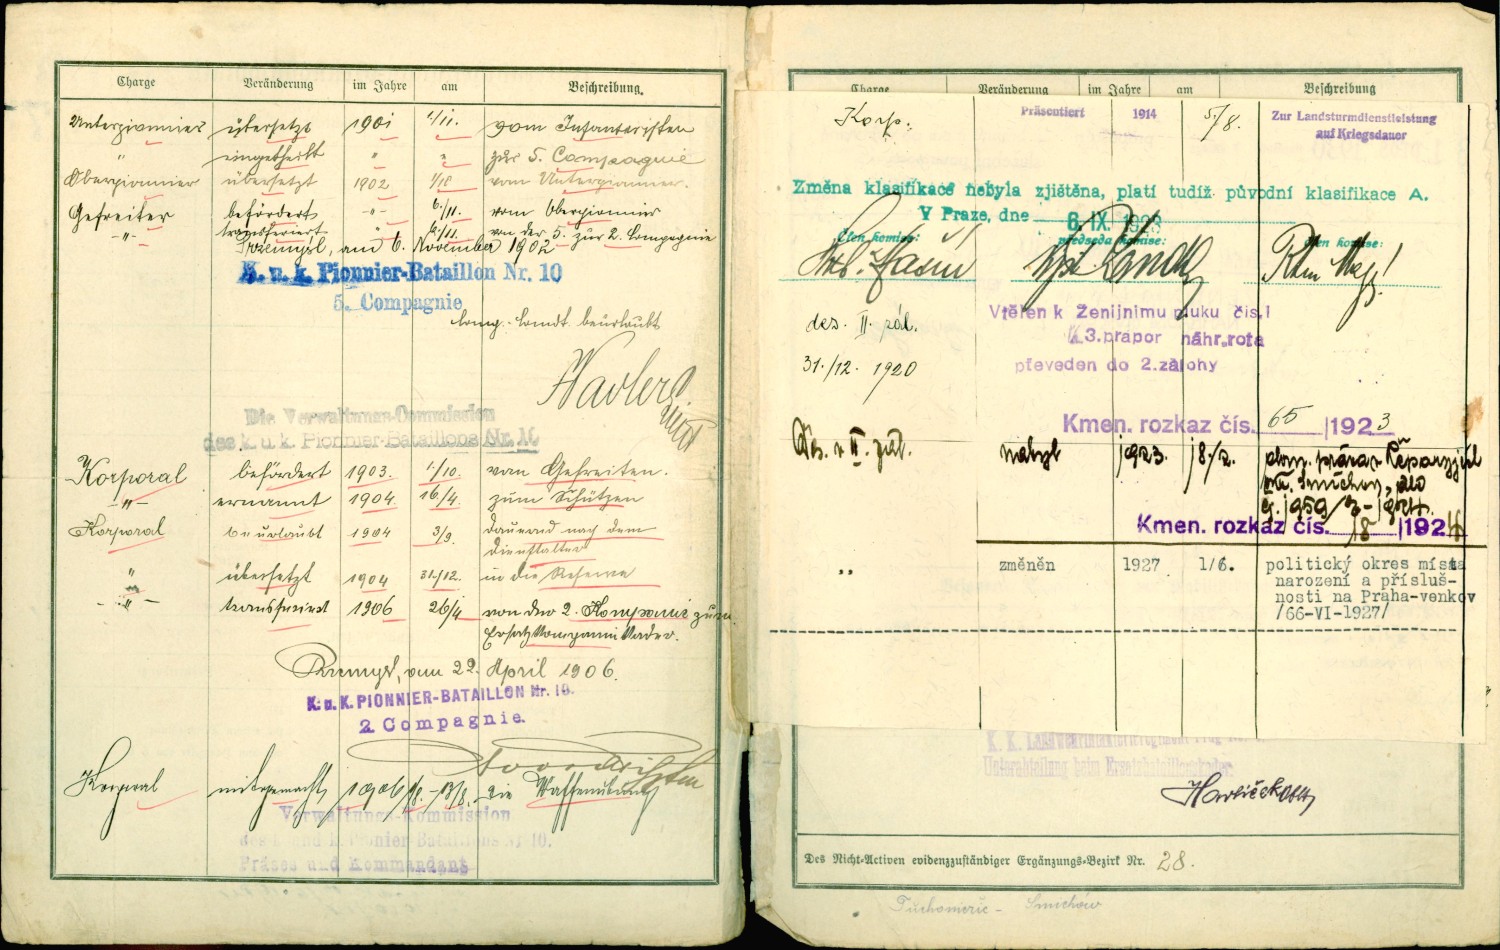 Charge Veränderung im Jahre am Beschreibung.
Unterpionnier übersetzt 1901 1/11. vom Infanteristen
" eingetheilt " " zur 5. Compagnie
Oberpionnier übersetzt 1902 1/18 vom Unterpionnier.
Gefreiter befördert -"- 6./11. vom Oberpionnier
-"- transferiert " 6/11. von der 5. zur 2. Compagnie
Przemysl, am 6. November 1902
K. u. k. Pionnier-Bataillon Nr. 10
5. Compagnie
Comp.-Comdt. beurlaubt
Die Verwaltungs-Commission
des k. u. k. Pionnier-Bataillons Nr. 10
Korporal befördert 1903. 1/10. vom Gefreiten.
-"- ernannt 1904. 16./4. zum Schützen
Korporal beurlaubt 1904 3/9. dauernd nach dem
Dienstalter
" übersetzt 1904 31./12. in die Reserve
-"- transferirt 1906 26/4 von der 2. Kompanie zum
Ersatzkompaniekader.
Przemysl, am 22. April 1906.
K. u. K. PIONNIER-BATAILLON Nr. 10.
2. Compagnie.
Korporal mitgemacht 1906 /8. - 13/8. die Waffenübung
Verwaltungs-Kommission
des k. und k. Pionier-Bataillons Nr 10.
Präses und Kommandant
Charge Veränderung im Jahre am Beschreibung
Korp. Präsentiert 1914 5/8. Zur Landsturmdienstleistung
auf Kriegsdauer
Změna klasifikace nebyla zjištěna, platí tudíž původní klasifikace A.
V Praze, dne 6. IX. 192
Člen komise: předseda komise: člen komise:
des. II. zál. Vtělen k Ženijnímu pluku čís. 1
3. prapor náhr. rota
31./12. 1920 převeden do 2. zálohy
Kmen. rozkaz čís. 65 1923
Des. v II. zál. nabyl 1923. 18./2. dom. práva v
Smíchov, dle
č. 1959/3-
Kmen. rozkaz čís. 18 1924
" změněn 1927 1/6. politický okres místa
narození a přísluš-
nosti na Praha-venkov
/66-VI-1927/
K. K. Landwehrinfanterieregiment Prag Nr.
Unterabteilung beim Ersatzbataillonskader
Havlíček Oblt
Des Nicht-Activen evidenzzuständiger Ergänzungs-Bezirk Nr. 28.
Tuchoměřic - Smichów